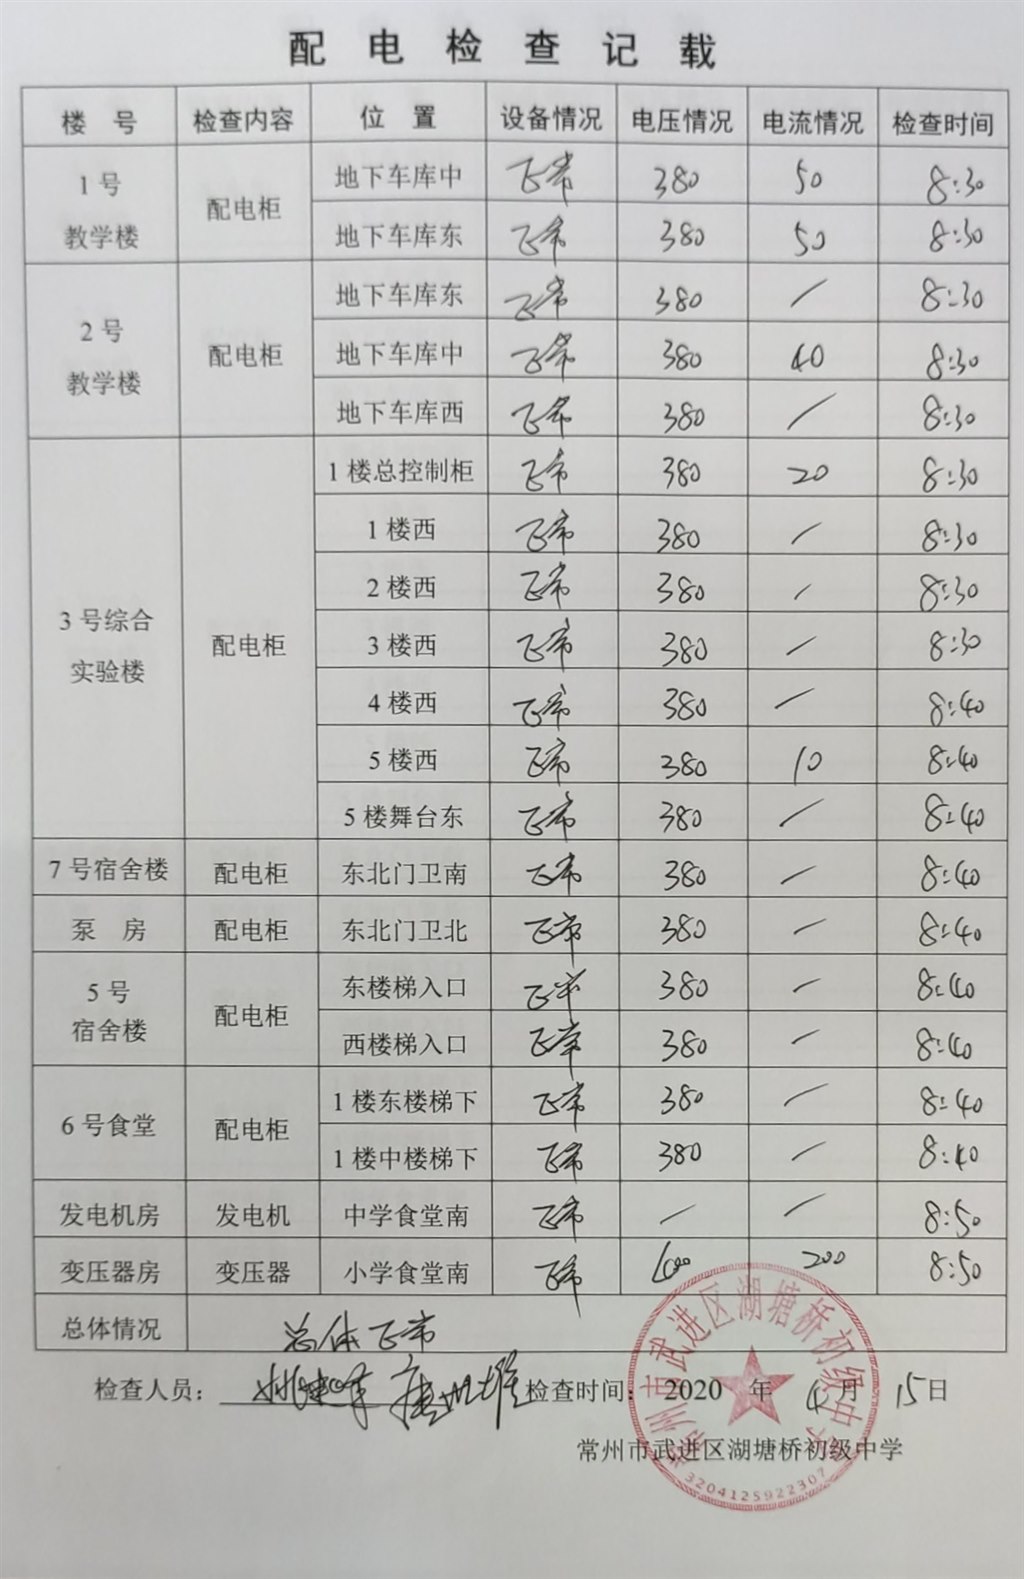 配电检查记载
楼号 检查内容 位置 设备情况 电压情况 电流情况 检查时间
1号教学楼 配电柜 地下车库中 正常 380 50 8:30
地下车库东 正常 380 50 8:30
2号教学楼 配电柜 地下车库东 正常 380 / 8:30
地下车库中 正常 380 40 8:30
地下车库西 正常 380 / 8:30
3号综合实验楼 配电柜 1楼总控制柜 正常 380 20 8:30
1楼西 正常 380 / 8:30
2楼西 正常 380 / 8:30
3楼西 正常 380 / 8:30
4楼西 正常 380 / 8:40
5楼西 正常 380 10 8:40
5楼舞台东 正常 380 / 8:40
7号宿舍楼 配电柜 东北门卫南 正常 380 / 8:40
泵房 配电柜 东北门卫北 正常 380 / 8:40
5号宿舍楼 配电柜 东楼梯入口 正常 380 / 8:40
西楼梯入口 正常 380 / 8:40
6号食堂 配电柜 1楼东楼梯下 正常 380 / 8:40
1楼中楼梯下 正常 380 / 8:40
发电机房 发电机 中学食堂南 正常 / / 8:50
变压器房 变压器 小学食堂南 正常 200 8:50
总体情况 总体正常
检查人员： 检查时间：2020年4月15日
常州市武进区湖塘桥初级中学
常州市武进区湖塘桥初级中学
3204125922307